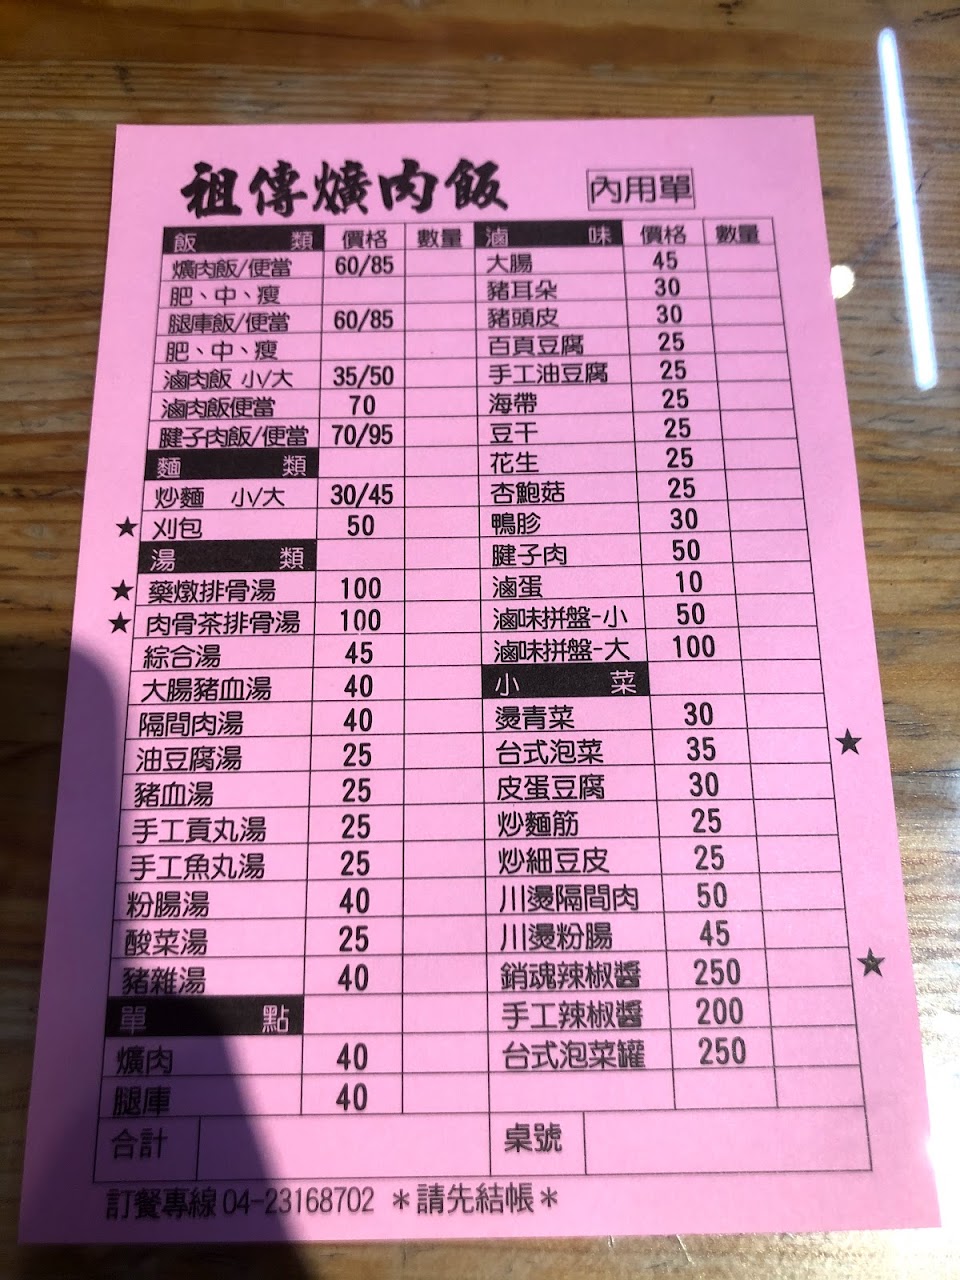 祖傳爌肉飯 內用單
飯類 價格 數量 滷味 價格 數量
爌肉飯/便當 60/85 大腸 45
肥、中、瘦 豬耳朵 30
腿庫飯/便當 60/85 豬頭皮 30
肥、中、瘦 百頁豆腐 25
滷肉飯 小/大 35/50 手工油豆腐 25
滷肉飯便當 70 海帶 25
腱子肉飯/便當 70/95 豆干 25
麵類 花生 25
炒麵 小/大 30/45 杏鮑菇 25
★ 刈包 50 鴨胗 30
湯類 腱子肉 50
★ 藥燉排骨湯 100 滷蛋 10
★ 肉骨茶排骨湯 100 滷味拼盤-小 50
綜合湯 45 滷味拼盤-大 100
大腸豬血湯 40 小菜
隔間肉湯 40 燙青菜 30
油豆腐湯 25 台式泡菜 35 ★
豬血湯 25 皮蛋豆腐 30
手工貢丸湯 25 炒麵筋 25
手工魚丸湯 25 炒細豆皮 25
粉腸湯 40 川燙隔間肉 50
酸菜湯 25 川燙粉腸 45
豬雜湯 40 銷魂辣椒醬 250 ★
單點 手工辣椒醬 200
爌肉 40 台式泡菜罐 250
腿庫 40
合計 桌號
訂餐專線 04-23168702 ＊請先結帳＊